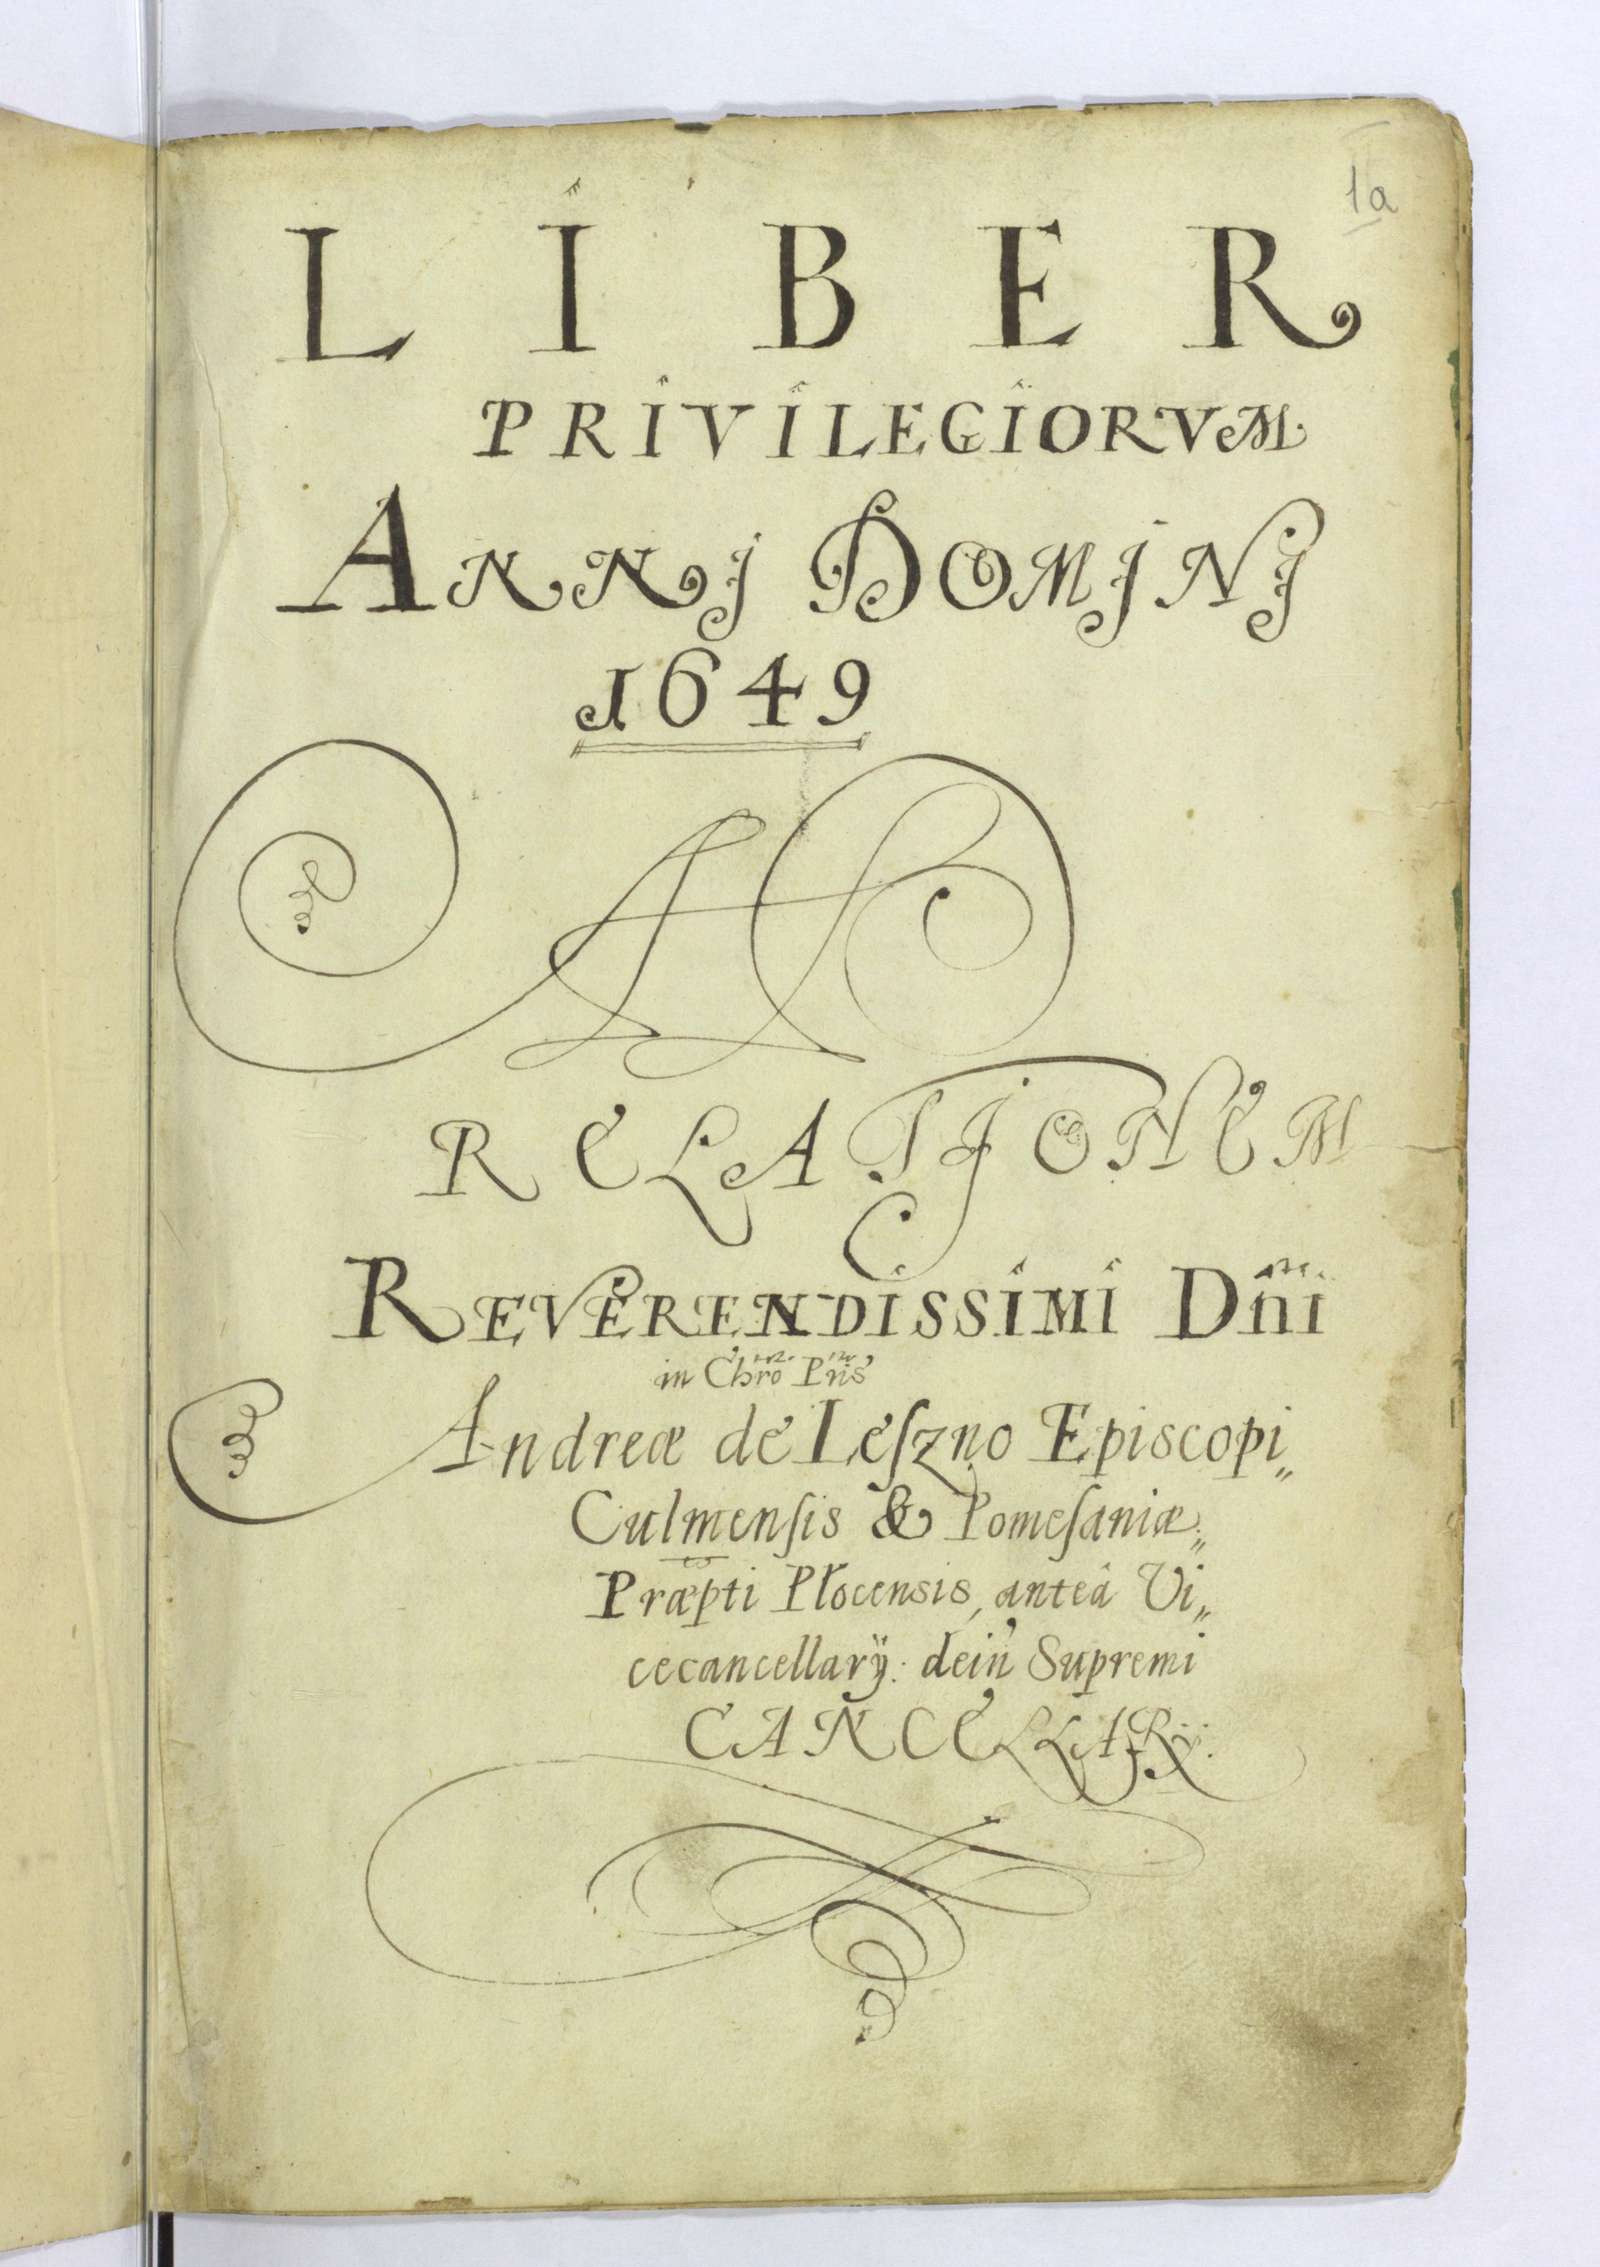 1a
LIBER
PRIVILEGIORVM
ANNJ DOMJNJ
1649
AD
RELATJONEM
REVERENDISSIMI Dni
in Chro Pris
Andreæ de Leſzno Episcopi„
Culmenſis & Pomeſaniæ„
Præpti Płocensis, anteâ Vi„
cecancellarÿ. dein Supremi
CANCELLARÿ.